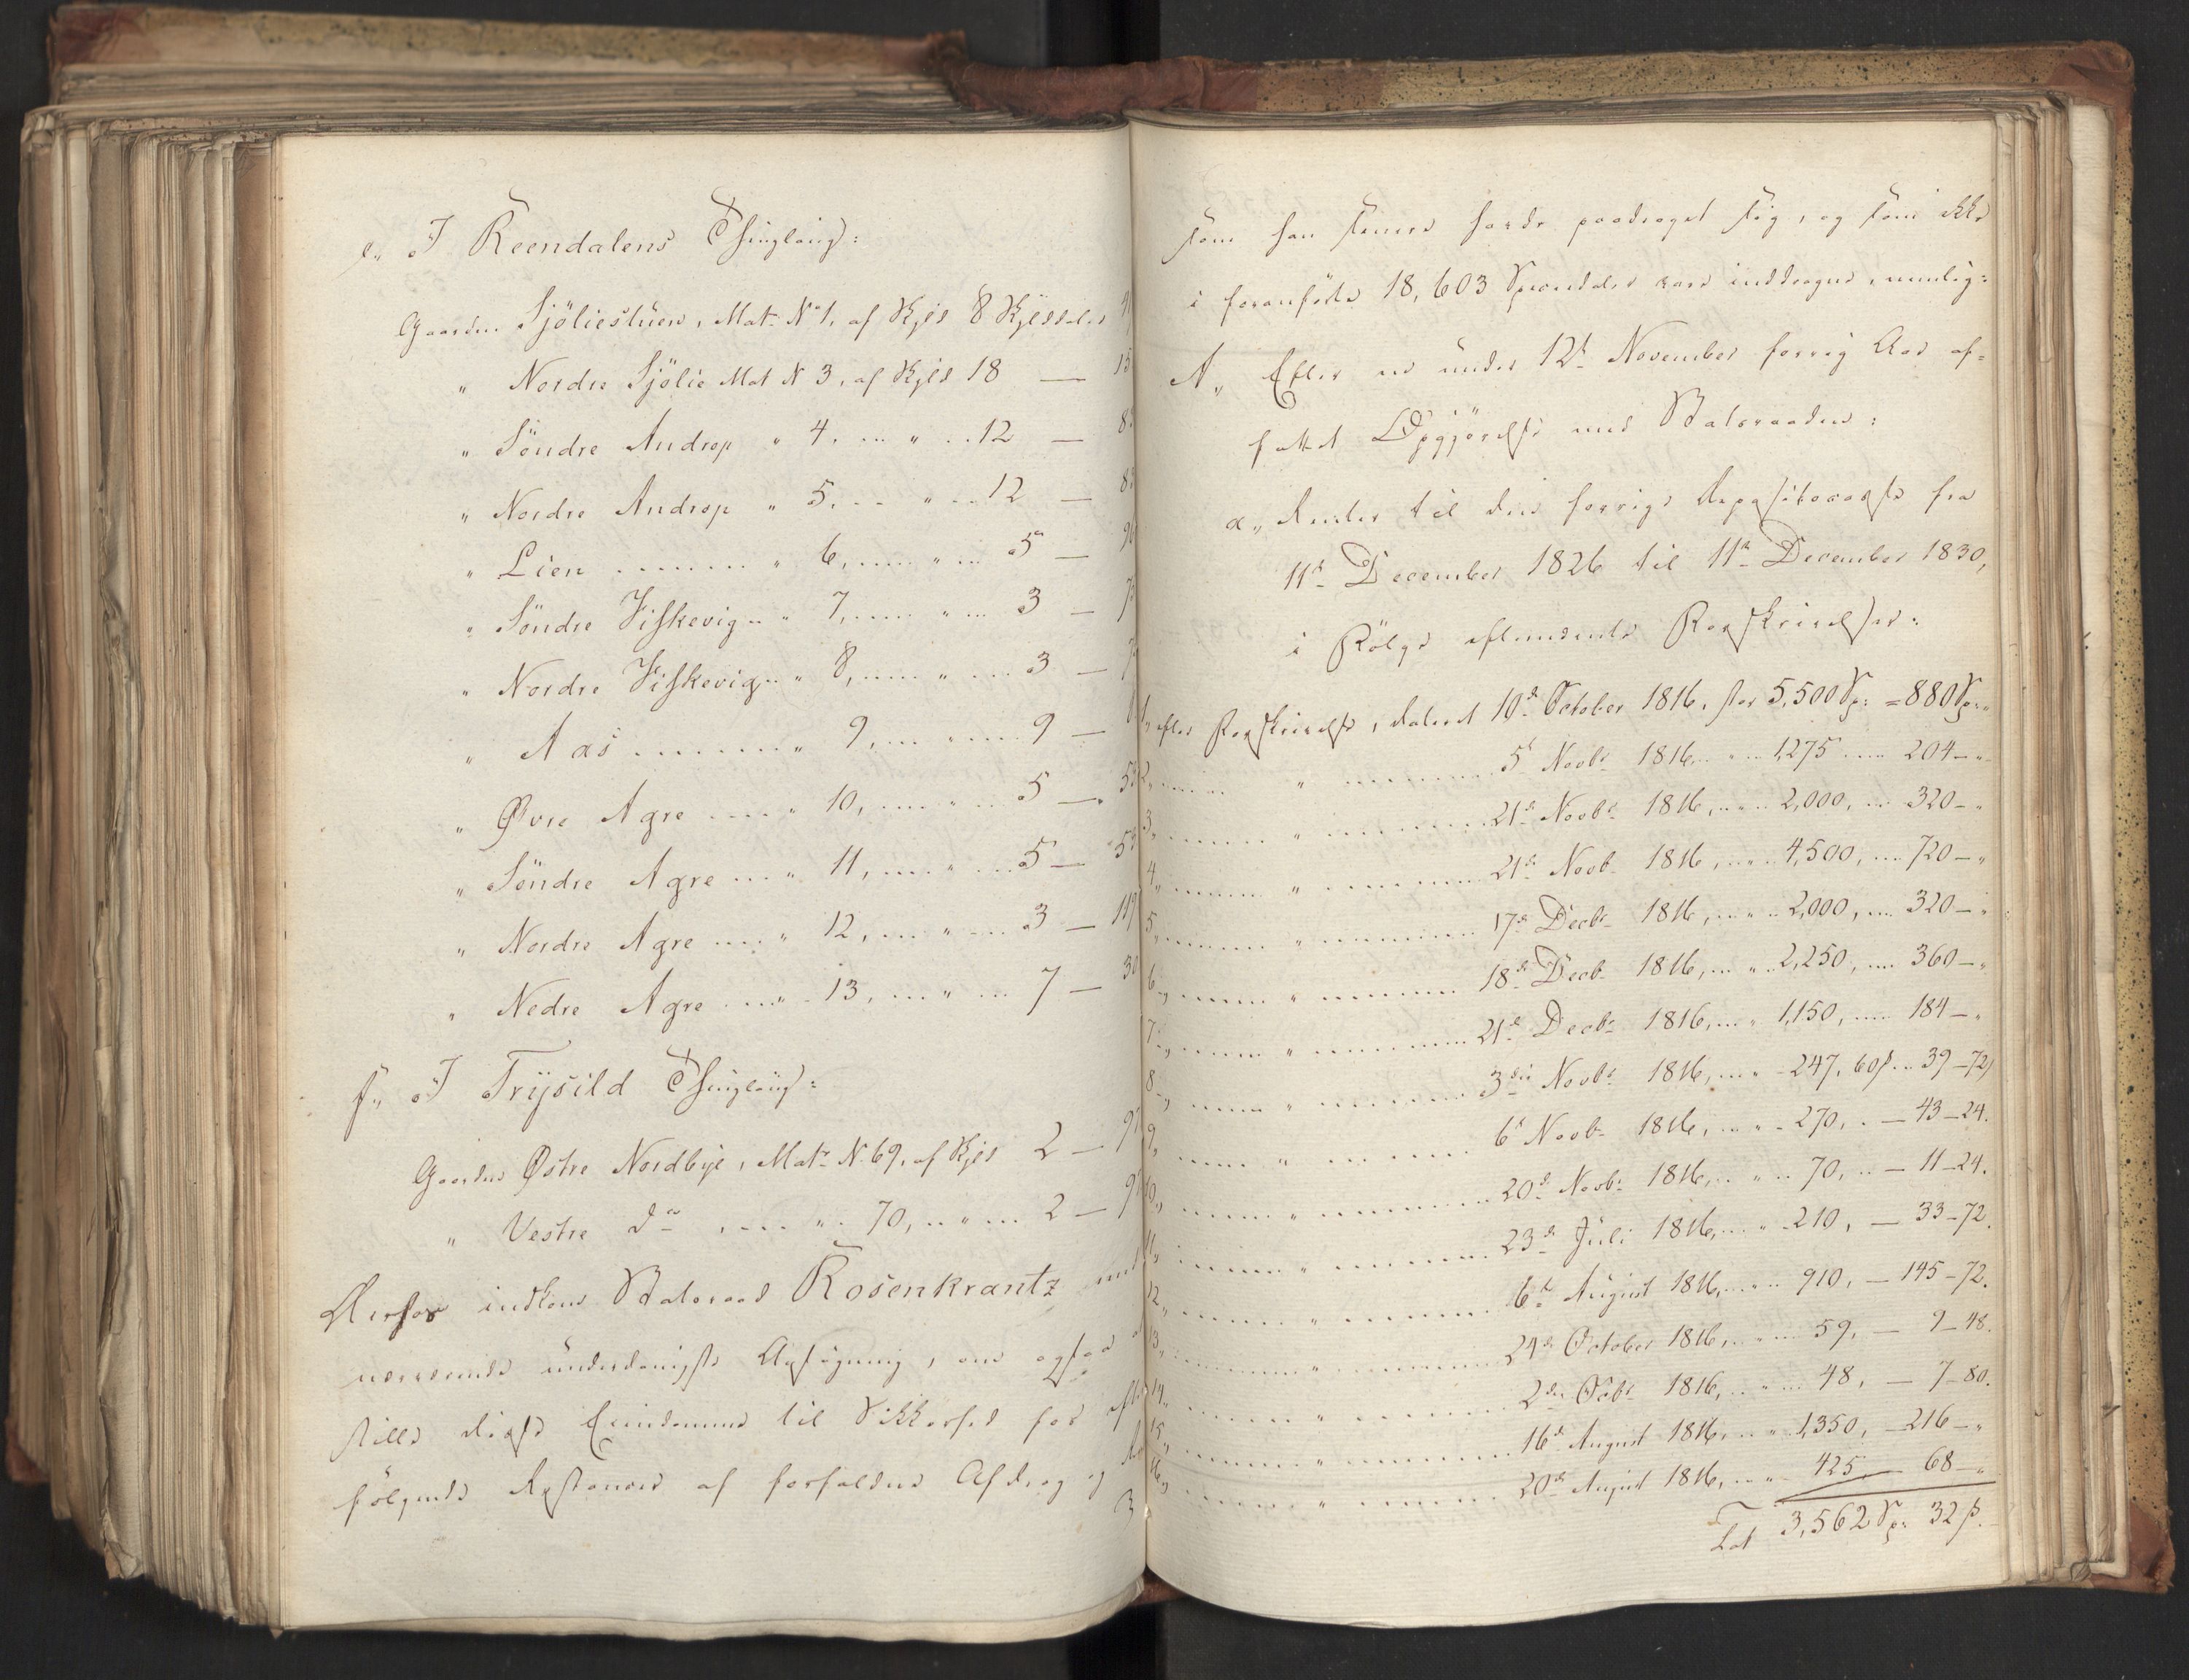 e,, I Reendalens Thinglaug:
Gaarden Sjöliestuen, Matr No 1, af Skyld 8 Skylddaler 4
" Nordre Sjölie Mat N 3, af Skyld 18 — 15
" Söndre Andrep " 4, ... " .. 12 — 8
" Nordre Andrep " 5, .. " .. 12 — 8
" Lien ........ " 6, .... " ... 5 — 9
" Söndre Fiskevig .. " 7, .... " ... 3 — 7
" Nordre Fiskevig .. " 8, .... " ... 3 — 7
" Aas ........ " 9, ... " .... 9 —
" Øvre Agre .... " 10, .... " ... 5 — 53
" Söndre Agre ... " 11, .... " ... 5 — 53
" Nordre Agre .... " 12, ... " ... 3 — 119
" Nedre Agre .... " 13, ... " ... 7 — 30
f,, I Trysild Thinglaug:
Gaarden Østre Nordbye, Matr N. 69, af Skyld 2 — 9
" Vestre do, .... " . 70, .. " ... 2 — 9
Derfor indkom Statsraad Rosenkrantz med
nærværende underdanigste Ansögning, om ogsaa
stille disse Eiendomme til Sikkerhed for efter
følgende Restancer af forfaldne Afdrag og
som han senere havde paadraget sig, og som ikke
i foranførte 18,603 Speciedaler vare inddragne, nemlig:
A,, Efter en under 12te November forrig Aar af=
sluttet Opgjörelse med Statsraaden:
a,, Renter til den forrige fra
11te December 1826 til 11te December 1830,
i Fölge eftermeldte Forskrivelser:
1,, efter Forskrivelse, dateret 10de October 1816, stor 5,500 Sp: = 880 Sp: "
2,, ...... " ........ 5te Novbr 1816, .. " .. 1,275 .... 204 — "
3,, ...... " ........ 21de Novbr 1816, .. " .. 2,000, ... 320 — "
4,, ...... " ........ 21de Novb 1816, .. " .. 4,500, ... 720 — "
5,, ...... " ........ 17de Decbr 1816, .. " .. 2,000, ... 320 — "
6,, ...... " ........ 18de Decb 1816, .. " .. 2,250, ... 360 — "
7,, ...... " ........ 21de Decbr 1816, .. " .. 1,150, ... 184 — "
8,, ...... " ........ 3die Novbr 1816, .. " .. 247, 60 ß .. 39 — 72,
9,, ...... " ........ 6te Novb 1816, .. " .. 270, . — 43 — 24.
10,, ...... " ........ 20de Novbr 1816, .. " .. 70, .. — 11 — 24.
11,, ...... " ........ 23de Juli 1816, .. " .. 210, — 33 — 72.
12,, ...... " ........ 6te August 1816, .. " .. 910, — 145 — 72.
13,, ...... " ........ 24de October 1816, .. " .. 59, — 9 — 48.
14,, ...... " ........ 2den Octbr 1816, .. " .. 48, — 7 — 80.
15,, ...... " ........ 16de August 1816, .. " .. 1,350, — 216 — "
16,, ...... " ........ 20de August 1816, .. " .. 425, — 68 — "
Lat 3,562 Sp: 32 ß.